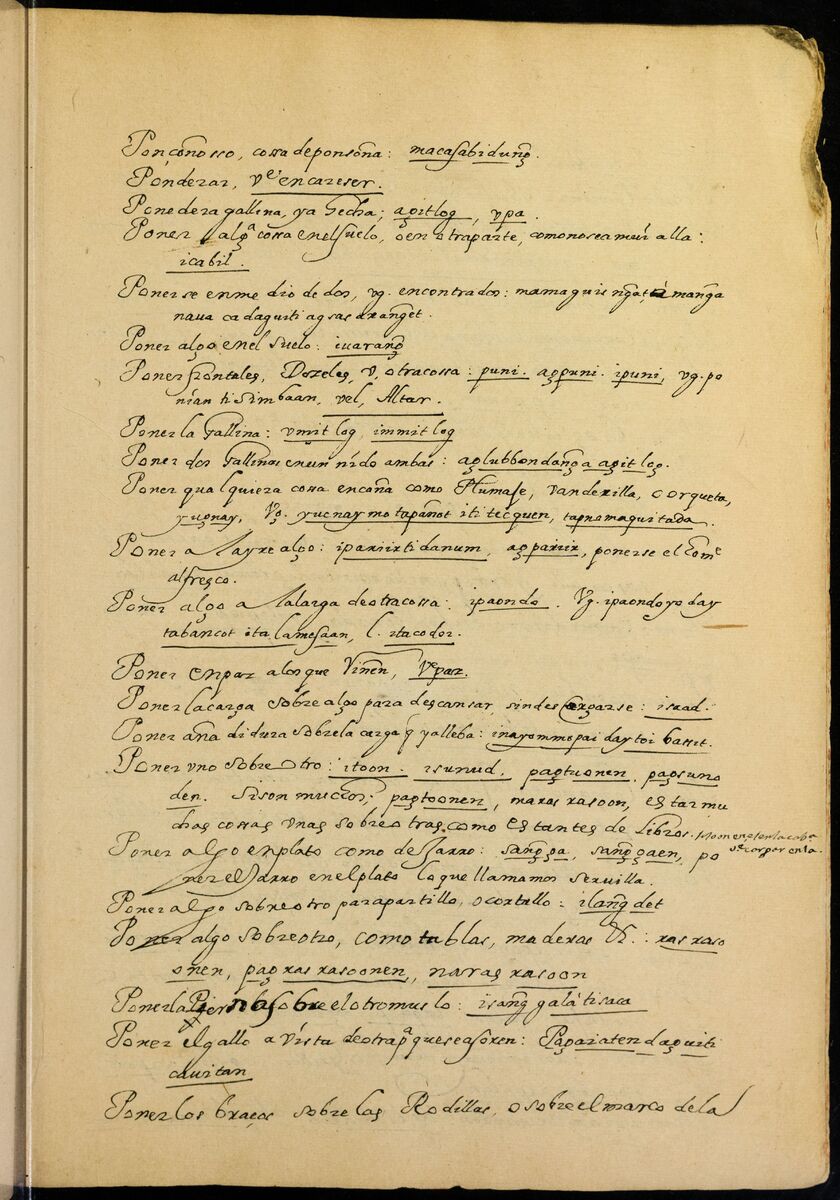 Ponçoñosso, cossa deponsoña: macasabidung̃.
Ponderar, vᵉ encareser.
Ponedera gallina, ya hecha; agitlog, vpa.
Poner algᵃ cossa enel suelo, ò en otraparte, comonosea mui alla:
icabil.
Ponerse enmedio de dos, vg. encontrados: mamaguis ngat, à manga
naua cadaguiti agsasaranget.
Poner algo enel suelo: iuarang̃
Poner frontales, Dozeles, v, otracossa: puni. agpuni. ipuni, vg. po
nían ti Simbaan, vel, Altar.
Poner la Gallina: vmit log, immit log
Poner dos Gallinas enun nido ambas: aglubbondang̃a agit log.
Poner qualquiera cossa encaña como Plumase, vanderilla, corqueta,
yugnay, Vg. yucnay mo tapañot iti tecquen, tapnomaquitada.
Poner a l ayre algo: ipariirtidanum, agpariir, ponerse el homᵉ
alfresco.
Poner algo a l alarga deotracossa: ipaondo. Vg. ipaondoyo day
tabancot ita lamesaan, l. itacodor.
Poner enpaz alos que Vinen, Vᵉ paz.
Poner lacarga sobre algo para descansar, sindescargarse: israd.
Poner aña didura sobrela carga q̃ yalleba: inayommopai daytoi bassit.
Poner vno sobre otro: itoon. isunud. pagtuonen. pagsuno
den. Sison muchos: pagtoonen, naxasxasoon, estar mu
chas cossas vnas sobre otras, como estantes de Libros.
Poner algo enplato como de Jarro: sang̃ga, sang̃gaen, po
ner el Jarro en el plato lo que llamamos seruilla.
Poner algo sobre otro parapartillo, o cortallo: ilang̃det
Poner algo sobre otro, como tablas, maderas &: xasxaso
onen, pagxasxasoonen, naxasxasoon
Poner la Pierna sobre el otro muslo: isang̃galátisaca
Poner el gallo a vista deotrap̃ᵃ queseasoren: Pagaiatendaguiti
cauitan
Poner los braços sobre las Rodillas, o sobre el marco de la